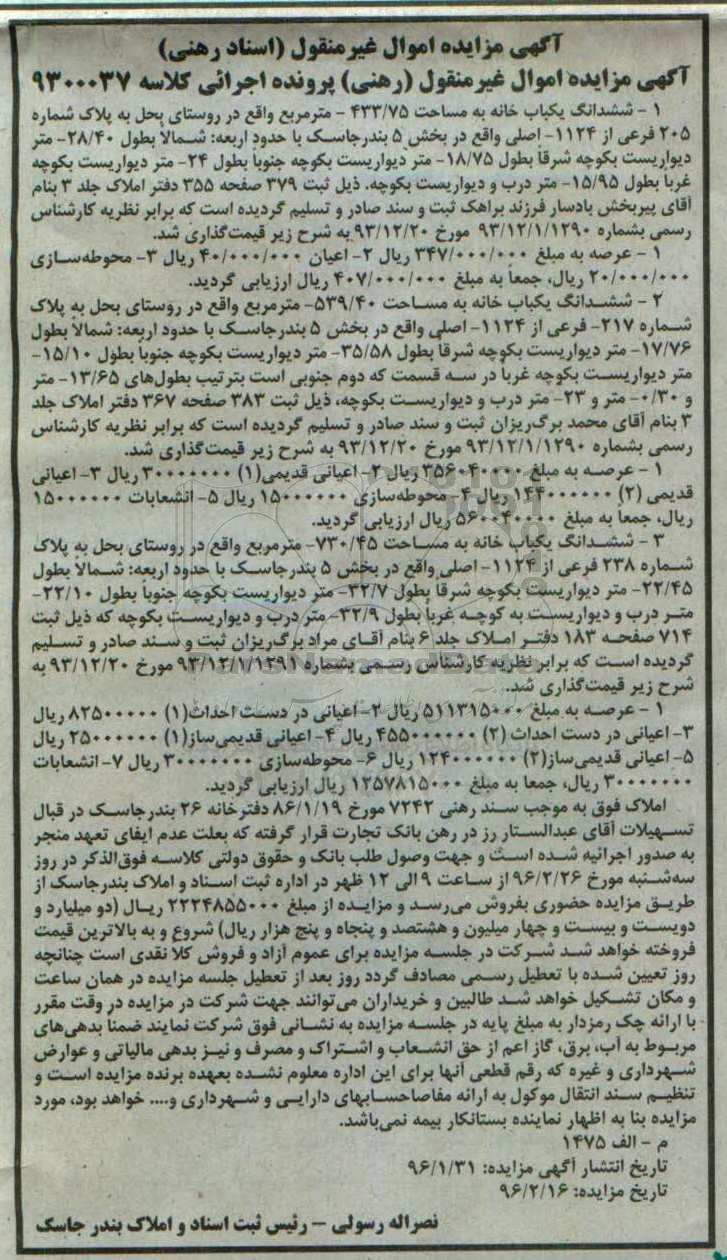 آگهی مزایده اموال غیرمنقول (اسناد رهنی)
آگهی مزایده اموال غیرمنقول (رهنی) پرونده اجرائی کلاسه ۹۳۰۰۰۳۷
۱ - ششدانگ یکباب خانه به مساحت ۴۳۳/۷۵ - مترمربع واقع در روستای بحل به پلاک شماره
۲۰۵ فرعی از ۱۱۲۴- اصلی واقع در بخش ۵ بندرجاسک با حدود اربعه: شمالاً بطول ۲۸/۴۰- متر
دیواریست بکوچه شرقاً بطول ۱۸/۷۵- متر دیواریست بکوچه جنوباً بطول ۲۴- متر دیواریست بکوچه
غرباً بطول ۱۵/۹۵- متر درب و دیواریست بکوچه. ذیل ثبت ۳۷۹ صفحه ۳۵۵ دفتر املاک جلد ۳ بنام
آقای پیربخش بادسار فرزند براهک ثبت و سند صادر و تسلیم گردیده است که برابر نظریه کارشناس
رسمی بشماره ۹۳/۱۲/۱/۱۲۹۰ مورخ ۹۳/۱۲/۲۰ به شرح زیر قیمت‌گذاری شد.
۱ - عرصه به مبلغ ۳۴۷/۰۰۰/۰۰۰ ریال ۲- اعیان ۴۰/۰۰۰/۰۰۰ ریال ۳- محوطه‌سازی
۲۰/۰۰۰/۰۰۰ ریال، جمعاً به مبلغ ۴۰۷/۰۰۰/۰۰۰ ریال ارزیابی گردید.
۲ - ششدانگ یکباب خانه به مساحت ۵۳۹/۴۰- مترمربع واقع در روستای بحل به پلاک
شماره ۲۱۷- فرعی از ۱۱۲۴- اصلی واقع در بخش ۵ بندرجاسک با حدود اربعه: شمالاً بطول
۱۷/۷۶- متر دیواریست بکوچه شرقاً بطول ۳۵/۵۸- متر دیواریست بکوچه جنوباً بطول ۱۵/۱۰-
متر دیواریست بکوچه غرباً در سه قسمت که دوم جنوبی است بترتیب بطول‌های ۱۳/۶۵- متر
و ۰/۳۰- متر و ۲۳- متر درب و دیواریست بکوچه، ذیل ثبت ۳۸۳ صفحه ۳۶۷ دفتر املاک جلد
۳ بنام آقای محمد برگ‌ریزان ثبت و سند صادر و تسلیم گردیده است که برابر نظریه کارشناس
رسمی بشماره ۹۳/۱۲/۱/۱۲۹۰ مورخ ۹۳/۱۲/۲۰ به شرح زیر قیمت‌گذاری شد.
۱ - عرصه به مبلغ ۳۵۶۰۴۰۰۰۰ ریال ۲- اعیانی قدیمی(۱) ۳۰۰۰۰۰۰۰ ریال ۳- اعیانی
قدیمی (۲) ۱۴۴۰۰۰۰۰۰ ریال ۴- محوطه‌سازی ۱۵۰۰۰۰۰۰ ریال ۵- انشعابات ۱۵۰۰۰۰۰۰
ریال، جمعاً به مبلغ ۵۶۰۰۴۰۰۰۰ ریال ارزیابی گردید.
۳ - ششدانگ یکباب خانه به مساحت ۷۳۰/۴۵- مترمربع واقع در روستای بحل به پلاک
شماره ۲۳۸ فرعی از ۱۱۲۴- اصلی واقع در بخش ۵ بندرجاسک با حدود اربعه: شمالاً بطول
۲۲/۴۵- متر دیواریست بکوچه شرقاً بطول ۳۲/۷- متر دیواریست بکوچه جنوباً بطول ۲۲/۱۰-
متر درب و دیواریست به کوچه غرباً بطول ۳۲/۹- متر درب و دیواریست بکوچه که ذیل ثبت
۷۱۴ صفحه ۱۸۳ دفتر املاک جلد ۶ بنام آقای مراد برگ‌ریزان ثبت و سند صادر و تسلیم
گردیده است که برابر نظریه کارشناس رسمی بشماره ۹۳/۱۲/۱/۱۲۹۱ مورخ ۹۳/۱۲/۲۰ به
شرح زیر قیمت‌گذاری شد.
۱ - عرصه به مبلغ ۵۱۱۳۱۵۰۰۰ ریال ۲- اعیانی در دست احداث(۱) ۸۲۵۰۰۰۰۰ ریال
۳- اعیانی در دست احداث (۲) ۴۵۵۰۰۰۰۰۰ ریال ۴- اعیانی قدیمی‌ساز(۱) ۲۵۰۰۰۰۰۰ ریال
۵- اعیانی قدیمی‌ساز(۲) ۱۲۴۰۰۰۰۰۰ ریال ۶- محوطه‌سازی ۳۰۰۰۰۰۰۰ ریال ۷- انشعابات
۳۰۰۰۰۰۰۰ ریال، جمعا به مبلغ ۱۲۵۷۸۱۵۰۰۰ ریال ارزیابی گردید.
املاک فوق به موجب سند رهنی ۷۲۴۲ مورخ ۸۶/۱/۱۹ دفترخانه ۲۶ بندرجاسک در قبال
تسهیلات آقای عبدالستار رز در رهن بانک تجارت قرار گرفته که بعلت عدم ایفای تعهد منجر
به صدور اجرائیه شده است و جهت وصول طلب بانک و حقوق دولتی کلاسه فوق‌الذکر در روز
سه‌شنبه مورخ ۹۶/۲/۲۶ از ساعت ۹ الی ۱۲ ظهر در اداره ثبت اسناد و املاک بندرجاسک از
طریق مزایده حضوری بفروش می‌رسد و مزایده از مبلغ ۲۲۲۴۸۵۵۰۰۰ ریال (دو میلیارد و
دویست و بیست و چهار میلیون و هشتصد و پنجاه و پنج هزار ریال) شروع و به بالاترین قیمت
فروخته خواهد شد شرکت در جلسه مزایده برای عموم آزاد و فروش کلا نقدی است چنانچه
روز تعیین شده با تعطیل رسمی مصادف گردد روز بعد از تعطیل جلسه مزایده در همان ساعت
و مکان تشکیل خواهد شد طالبین و خریداران می‌توانند جهت شرکت در مزایده در وقت مقرر
با ارائه چک رمزدار به مبلغ پایه در جلسه مزایده به نشانی فوق شرکت نمایند ضمناً بدهی‌های
مربوط به آب، برق، گاز اعم از حق انشعاب و اشتراک و مصرف و نیز بدهی مالیاتی و عوارض
شهرداری و غیره که رقم قطعی آنها برای این اداره معلوم نشده بعهده برنده مزایده است و
تنظیم سند انتقال موکول به ارائه مفاصاحسابهای دارایی و شهرداری و.... خواهد بود، مورد
مزایده بنا به اظهار نماینده بستانکار بیمه نمی‌باشد.
م - الف ۱۴۷۵
تاریخ انتشار آگهی مزایده: ۹۶/۱/۳۱
تاریخ مزایده: ۹۶/۲/۱۶
نصراله رسولی - رئیس ثبت اسناد و املاک بندر جاسک